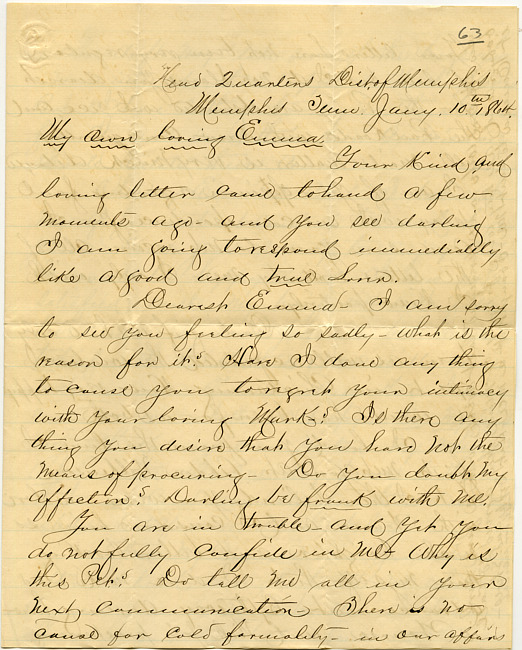 63
Head Quarters Dist of Memphis
Memphis Tenn Jany. 10th 1864.
My own loving Emma
Your Kind and
loving letter came to hand a few
moments ago - and you see darling
I am going to respond immediately
like a good and true Lover.
Dearest Emma - I am sorry
to see you feeling so sadly - what is the
reason for it? Have I done any thing
to cause you to regret your intimacy
with your loving Mark? Is there any
thing you desire that you have not the
means of procuring - Do you doubt My
affection? Darling be frank with me.
You are in trouble - and yet you
do not fully confide in me - Why is
this Pet? Do tell me all in your
next communication - There is no
cause for cold formality - in our affairs